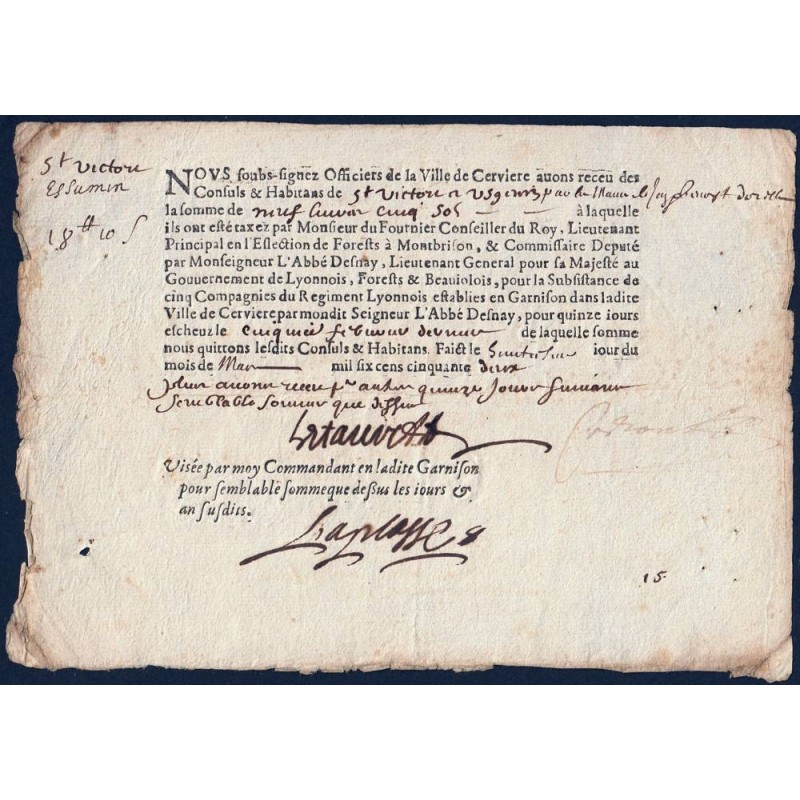 St Victor
Essumin
18 tt 10 s
NOVS soubs-signez Officiers de la Ville de Cerviere auons receu des
Consuls & Habitans de St Victor
la somme de neuf liures cinq sols à laquelle
ils ont esté taxez par Monsieur du Fournier Conseiller du Roy, Lieutenant
Principal en l'Eslection de Forests à Montbrison, & Commissaire Deputé
par Monseigneur L'Abbé Desnay, Lieutenant General pour sa Majesté au
Gouuernement de Lyonnois, Forests & Beauiolois, pour la Subsistance de
cinq Compagnies du Regiment Lyonnois establies en Garnison dans ladite
Ville de Cerviere par mondit Seigneur L'Abbé Desnay, pour quinze iours
escheuz le cinquie febvrier dernier de laquelle somme
nous quittons lesdits Consuls & Habitans. Faict le iour du
mois de Mars mil six cens cinquante deux
plus auons receu pr autre quinze jours suiuant
semblable somme que dessus
Visée par moy Commandant en ladite Garnison
pour semblable somme que dessus les iours &
an susdits.
15.